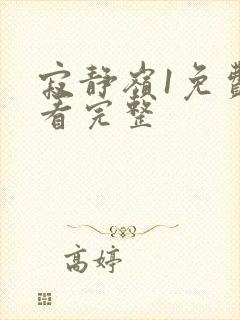 寂静嶺1免費
看完整
高婷